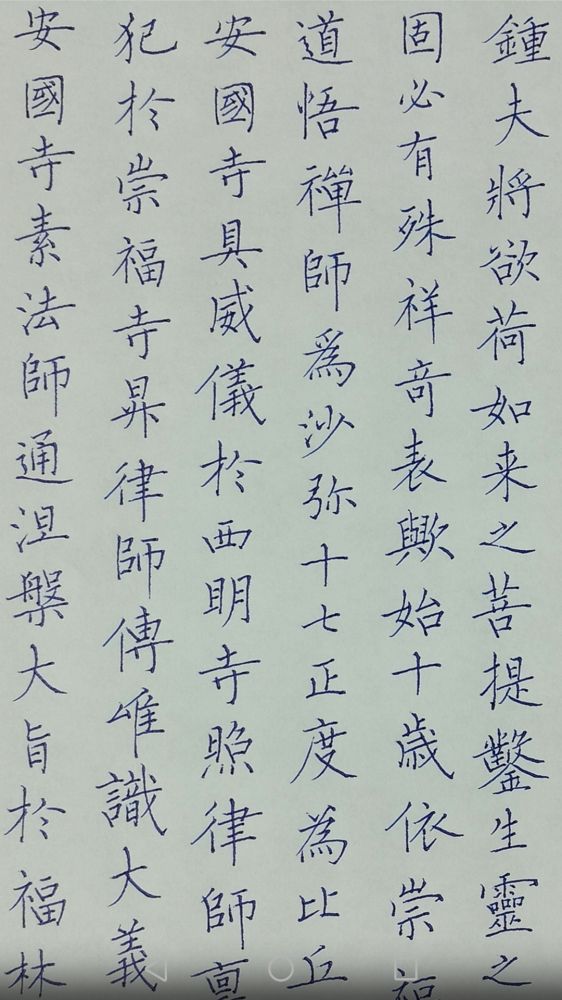 鍾夫將欲荷如来之菩提鑿生靈之
固必有殊祥奇表歟始十歲依崇福
道悟禪師為沙弥十七正度為比丘
安國寺具威儀於西明寺照律師稟
犯於崇福寺昇律師傳唯識大義
安國寺素法師通涅槃大旨於福林